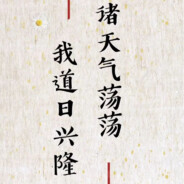 诸天气荡荡
我道日兴隆